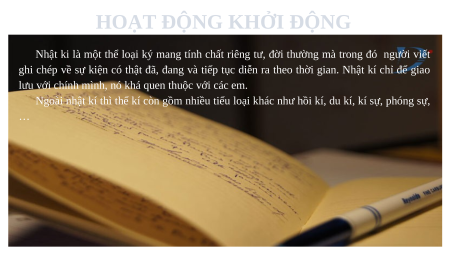 HOẠT ĐỘNG KHỞI ĐỘNG
Nhật kí là một thể loại ký mang tính chất riêng tư, đời thường mà trong đó người viết
ghi chép về sự kiện có thật đã, đang và tiếp tục diễn ra theo thời gian. Nhật kí chỉ để giao
lưu với chính mình, nó khá quen thuộc với các em.
Ngoài nhật kí thì thể kí còn gồm nhiều tiểu loại khác như hồi kí, du kí, kí sự, phóng sự,
…